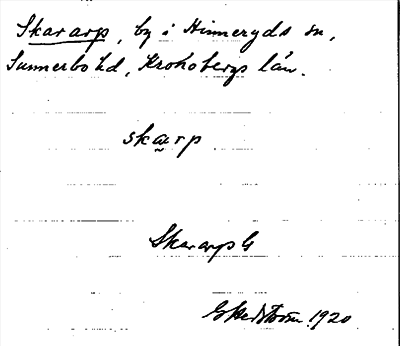 Skararp, by i Hinneryds sn,
Sunnerbo hd, Kronobergs län.
skarp
Skararps G
1920